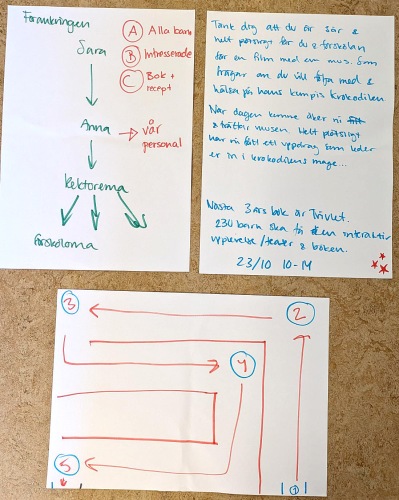 Förankringen
Sara
Anna
vår
personal
Rektorerna
förskolorna
A Alla barn
B Intresserade
C Bok +
recept
Tänk dig att du är 3år &
helt plötsligt får du & förskolan
får en film med en mus. Som
frågar om du vill följa med &
hälsa på hans kompis krokodilen
När dagen kommer åker ni
& träffar musen. Helt plötsligt
har ni fått ett uppdrag som leder
er in i krokodilens mage...
Nästa 3 års bok är Trivlet.
230 barn ska få en interaktiv
upplevelse/teater & boken.
23/10 10-14
3
2
4
5
1